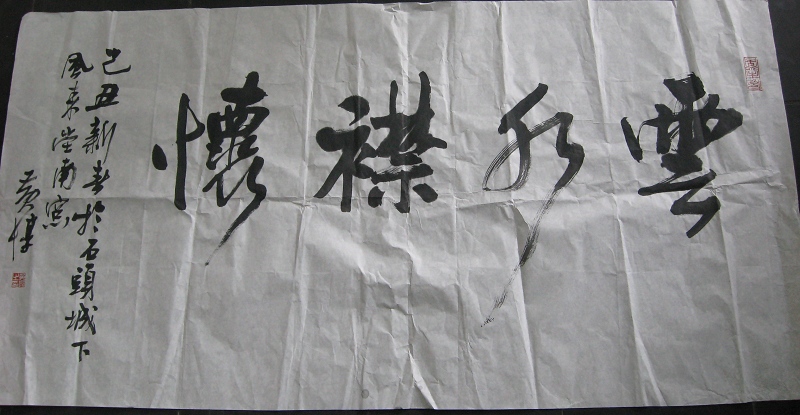 雲水襟懷
己丑新春於石頭城下
風來堂南窗
黃惇